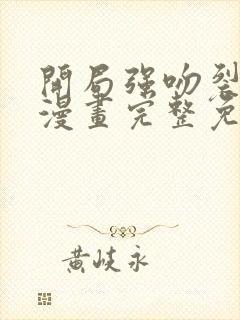 開局強吻裂
漫畫完整免
黃岐永